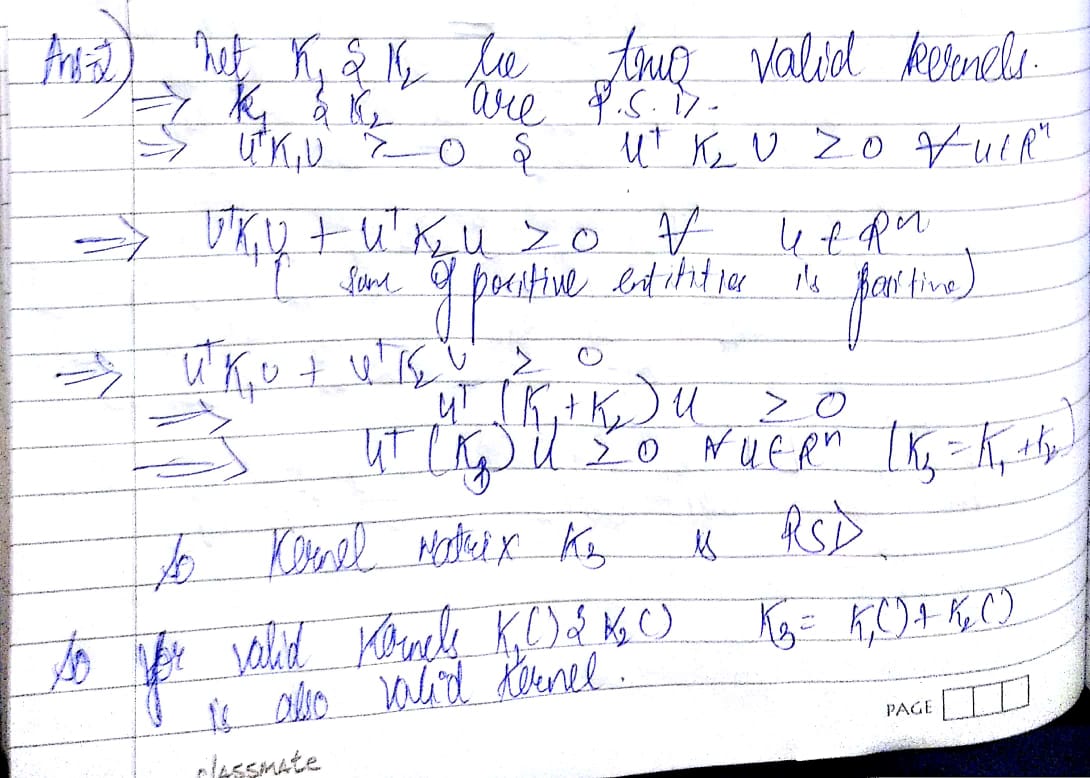 Ans 2) Let K₁ & K₂ be two valid kernels.
⇒ K₁ & K₂ are P.S.D.
⇒ UᵀK₁U ≥ 0 & Uᵀ K₂ U ≥ 0 ∀ u ∈ Rⁿ
⇒ UᵀK₁U + UᵀK₂U ≥ 0 ∀ u ∈ Rⁿ
( sum of positive entitities is positive)
⇒ UᵀK₁U + UᵀK₂U ≥ 0
⇒ Uᵀ (K₁+K₂) U ≥ 0
⇒ Uᵀ (K₃) U ≥ 0 ∀ u ∈ Rⁿ (K₃ = K₁ + K₂)
So Kernel Matrix K₃ is PSD.
So for valid Kernels K₁() & K₂() K₃ = K₁() + K₂()
is also valid kernel.
PAGE
classmate